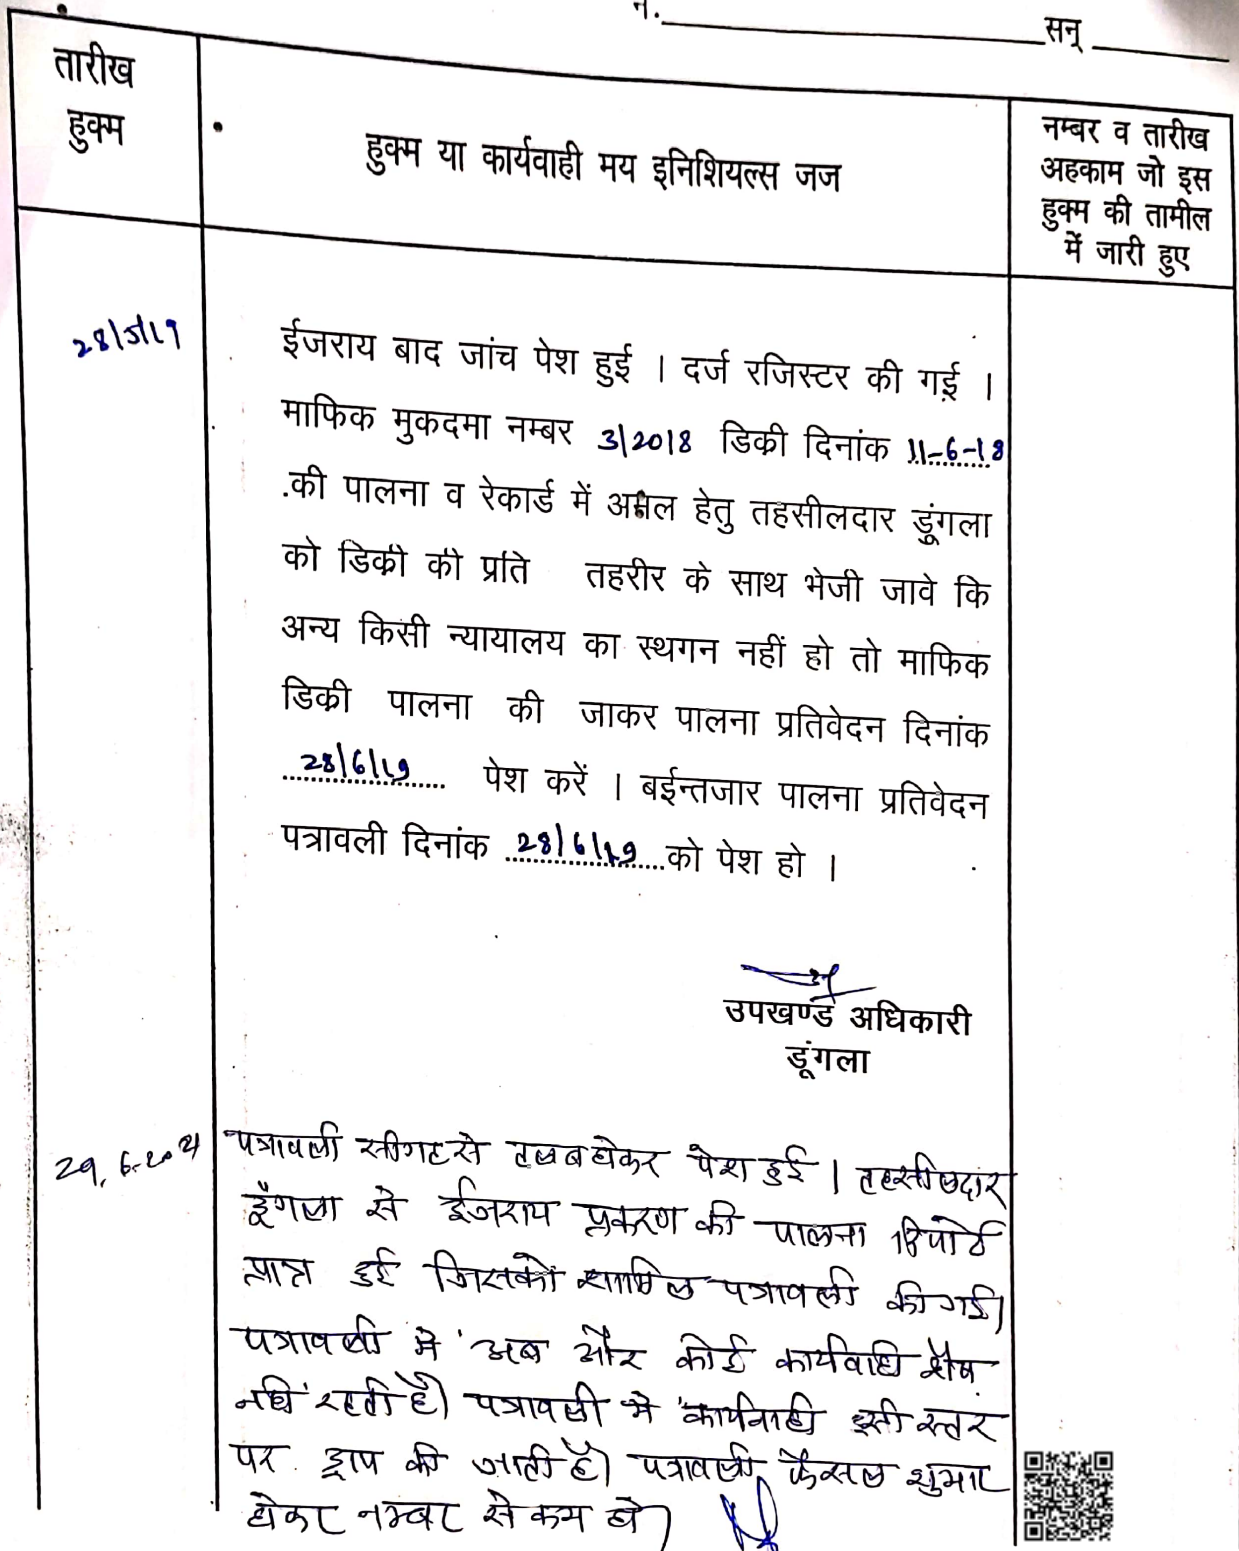 न.____________ सन् ________
तारीख
हुक्म
हुक्म या कार्यवाही मय इनिशियल्स जज
नम्बर व तारीख
अहकाम जो इस
हुक्म की तामील
में जारी हुए
28/5/19
ईजराय बाद जांच पेश हुई । दर्ज रजिस्टर की गई ।
माफिक मुकदमा नम्बर 3/2018 डिकी दिनांक 11-6-18
.की पालना व रेकार्ड में अमल हेतु तहसीलदार डूंगला
को डिकी की प्रति तहरीर के साथ भेजी जावे कि
अन्य किसी न्यायालय का स्थगन नहीं हो तो माफिक
डिकी पालना की जाकर पालना प्रतिवेदन दिनांक
28/6/19 पेश करें । बईन्तजार पालना प्रतिवेदन
पत्रावली दिनांक 28/6/19 को पेश हो ।
उपखण्ड अधिकारी
डूंगला
29.6.2021
पत्रावली सीगट से तलब होकर पेश हुई । तहसीलदार
डूंगला से ईजराय प्रकरण की पालना रिपोर्ट
प्राप्त हुई जिसको शामिल पत्रावली की गई।
पत्रावली में अब और कोई कार्यवाहि शेष
नहि रहती है। पत्रावली में कार्यवाही इसी स्तर
पर ड्राप की जाती है। पत्रावली फैसल शुमार
होकर नम्बर से कम हो।